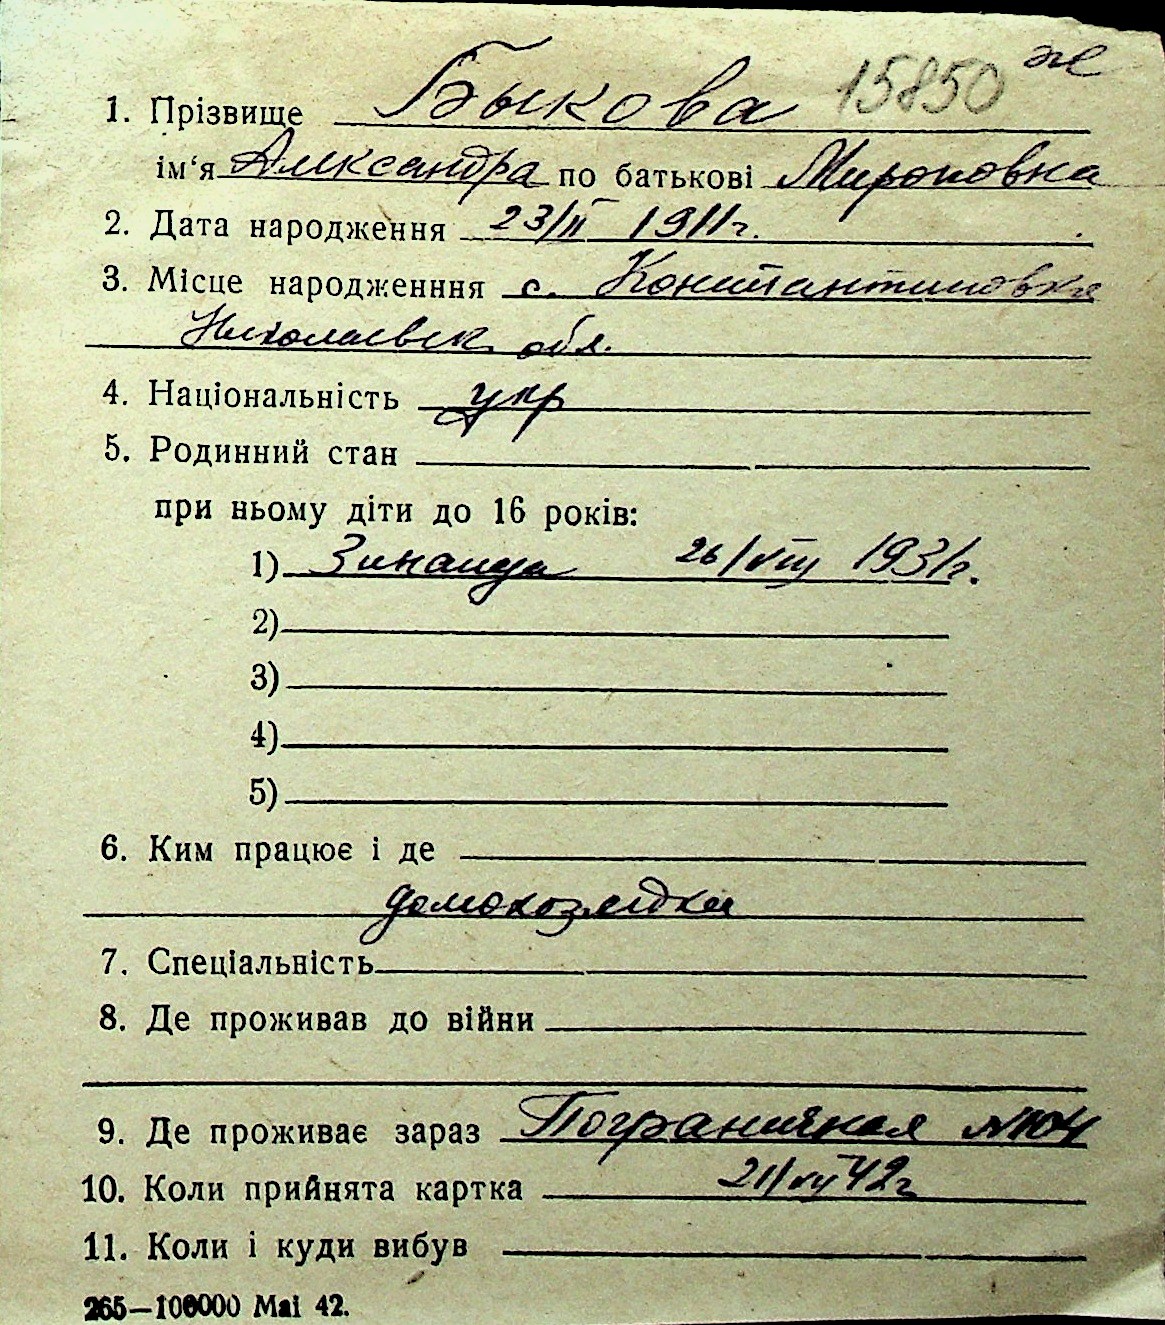 же
1. Прізвище Быкова 15850
ім‘я Александра по батькові Мироновна
2. Дата народження 23/II 1911г.
3. Місце народженння с. Константиновка
Николаевск обл.
4. Національність укр
5. Родинний стан
при ньому діти до 16 років:
1) Зинаида 26/VIII 1931г.
2)
3)
4)
5)
6. Ким працює і де
домохозяйка
7. Спеціальність
8. Де проживав до війни
9. Де проживає зараз Пограничная №104
10. Коли прийнята картка 21/VII 42г
11. Коли і куди вибув
265—100000 Mai 42.